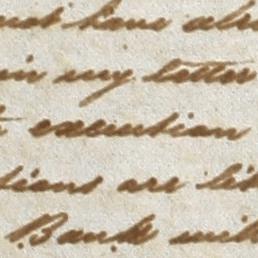 not have alre
in my letter
execution
tions are lik
Bank with